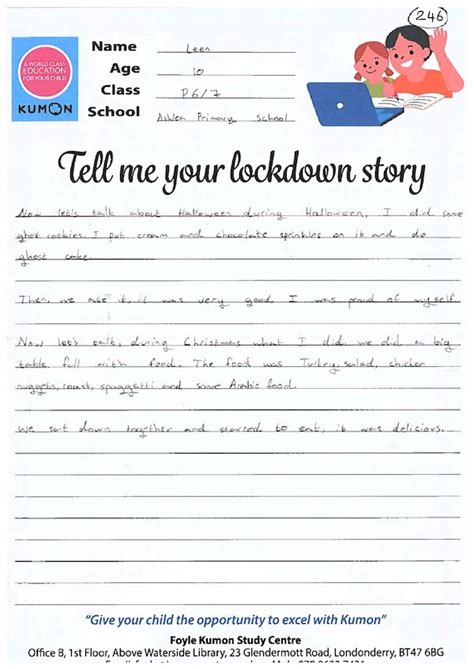 246
A WORLD CLASS
EDUCATION
FOR YOUR CHILD
KUMON
Name Leen
Age 10
Class P6/7
School Ashlea Primary School
Tell me your lockdown story
Now let's talk about Halloween during Halloween, I did some
ghost cookies. I put cream and chocolate sprinkles on it and do
ghost cake.
Then, we ate it, it was very good I was proud of my self.
Now let's talk, during Christmas what I did. we did a big
table full with food. The food was Turkey, salad, chicken
nuggets, roast, spaggetti and some Arabic food.
We sat down together and started to eat, it was delicious.
"Give your child the opportunity to excel with Kumon"
Foyle Kumon Study Centre
Office B, 1st Floor, Above Waterside Library, 23 Glendermott Road, Londonderry, BT47 6BG